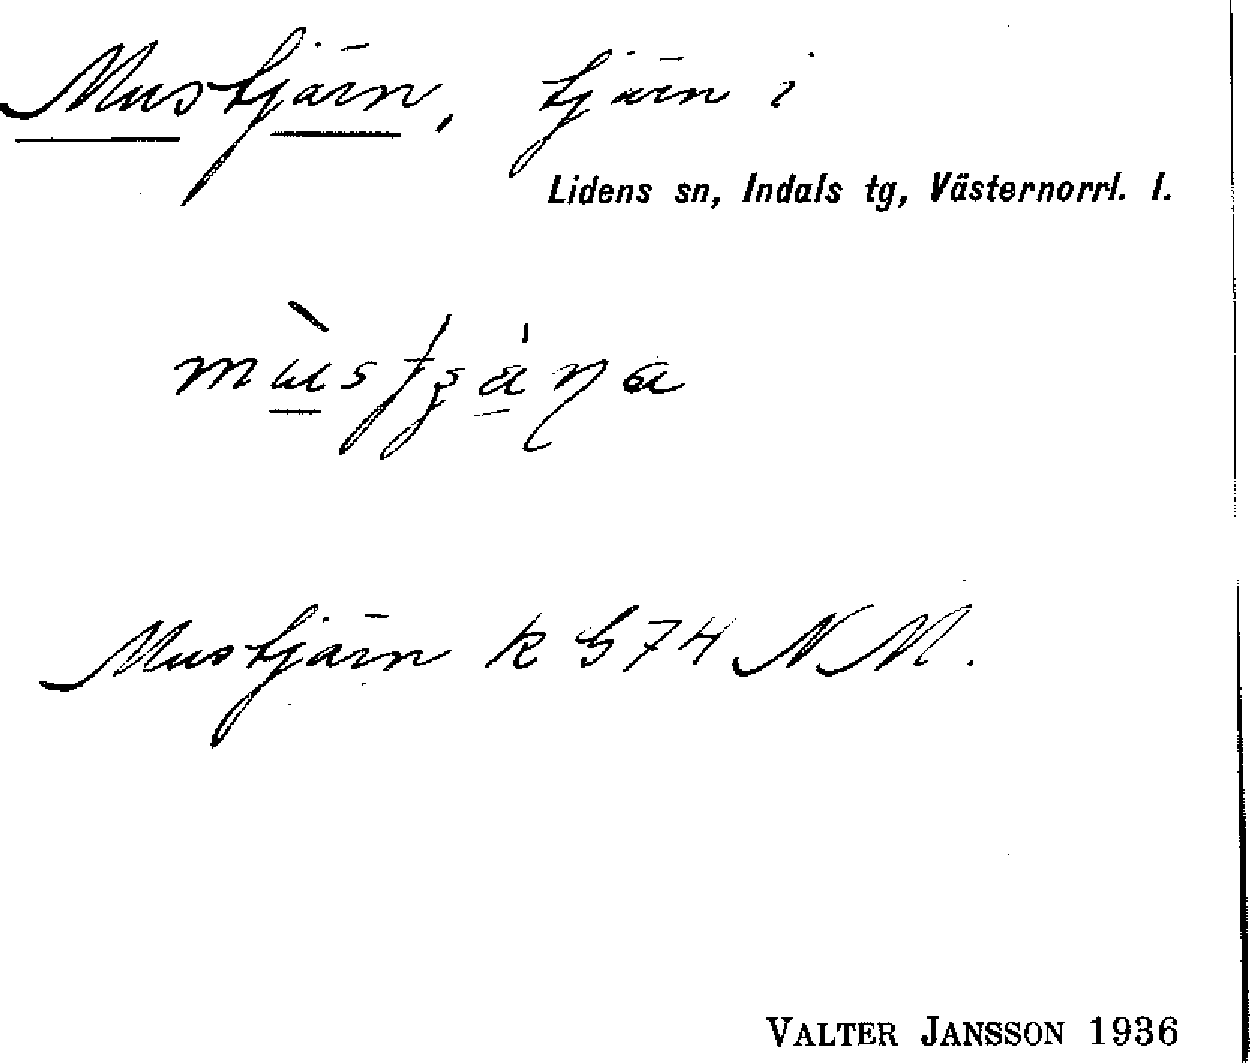 Mustjärn, tjärn i
Lidens sn, Indals tg, Västernorrl. l.
Mustjärn k G74 NM.
VALTER JANSSON 1936